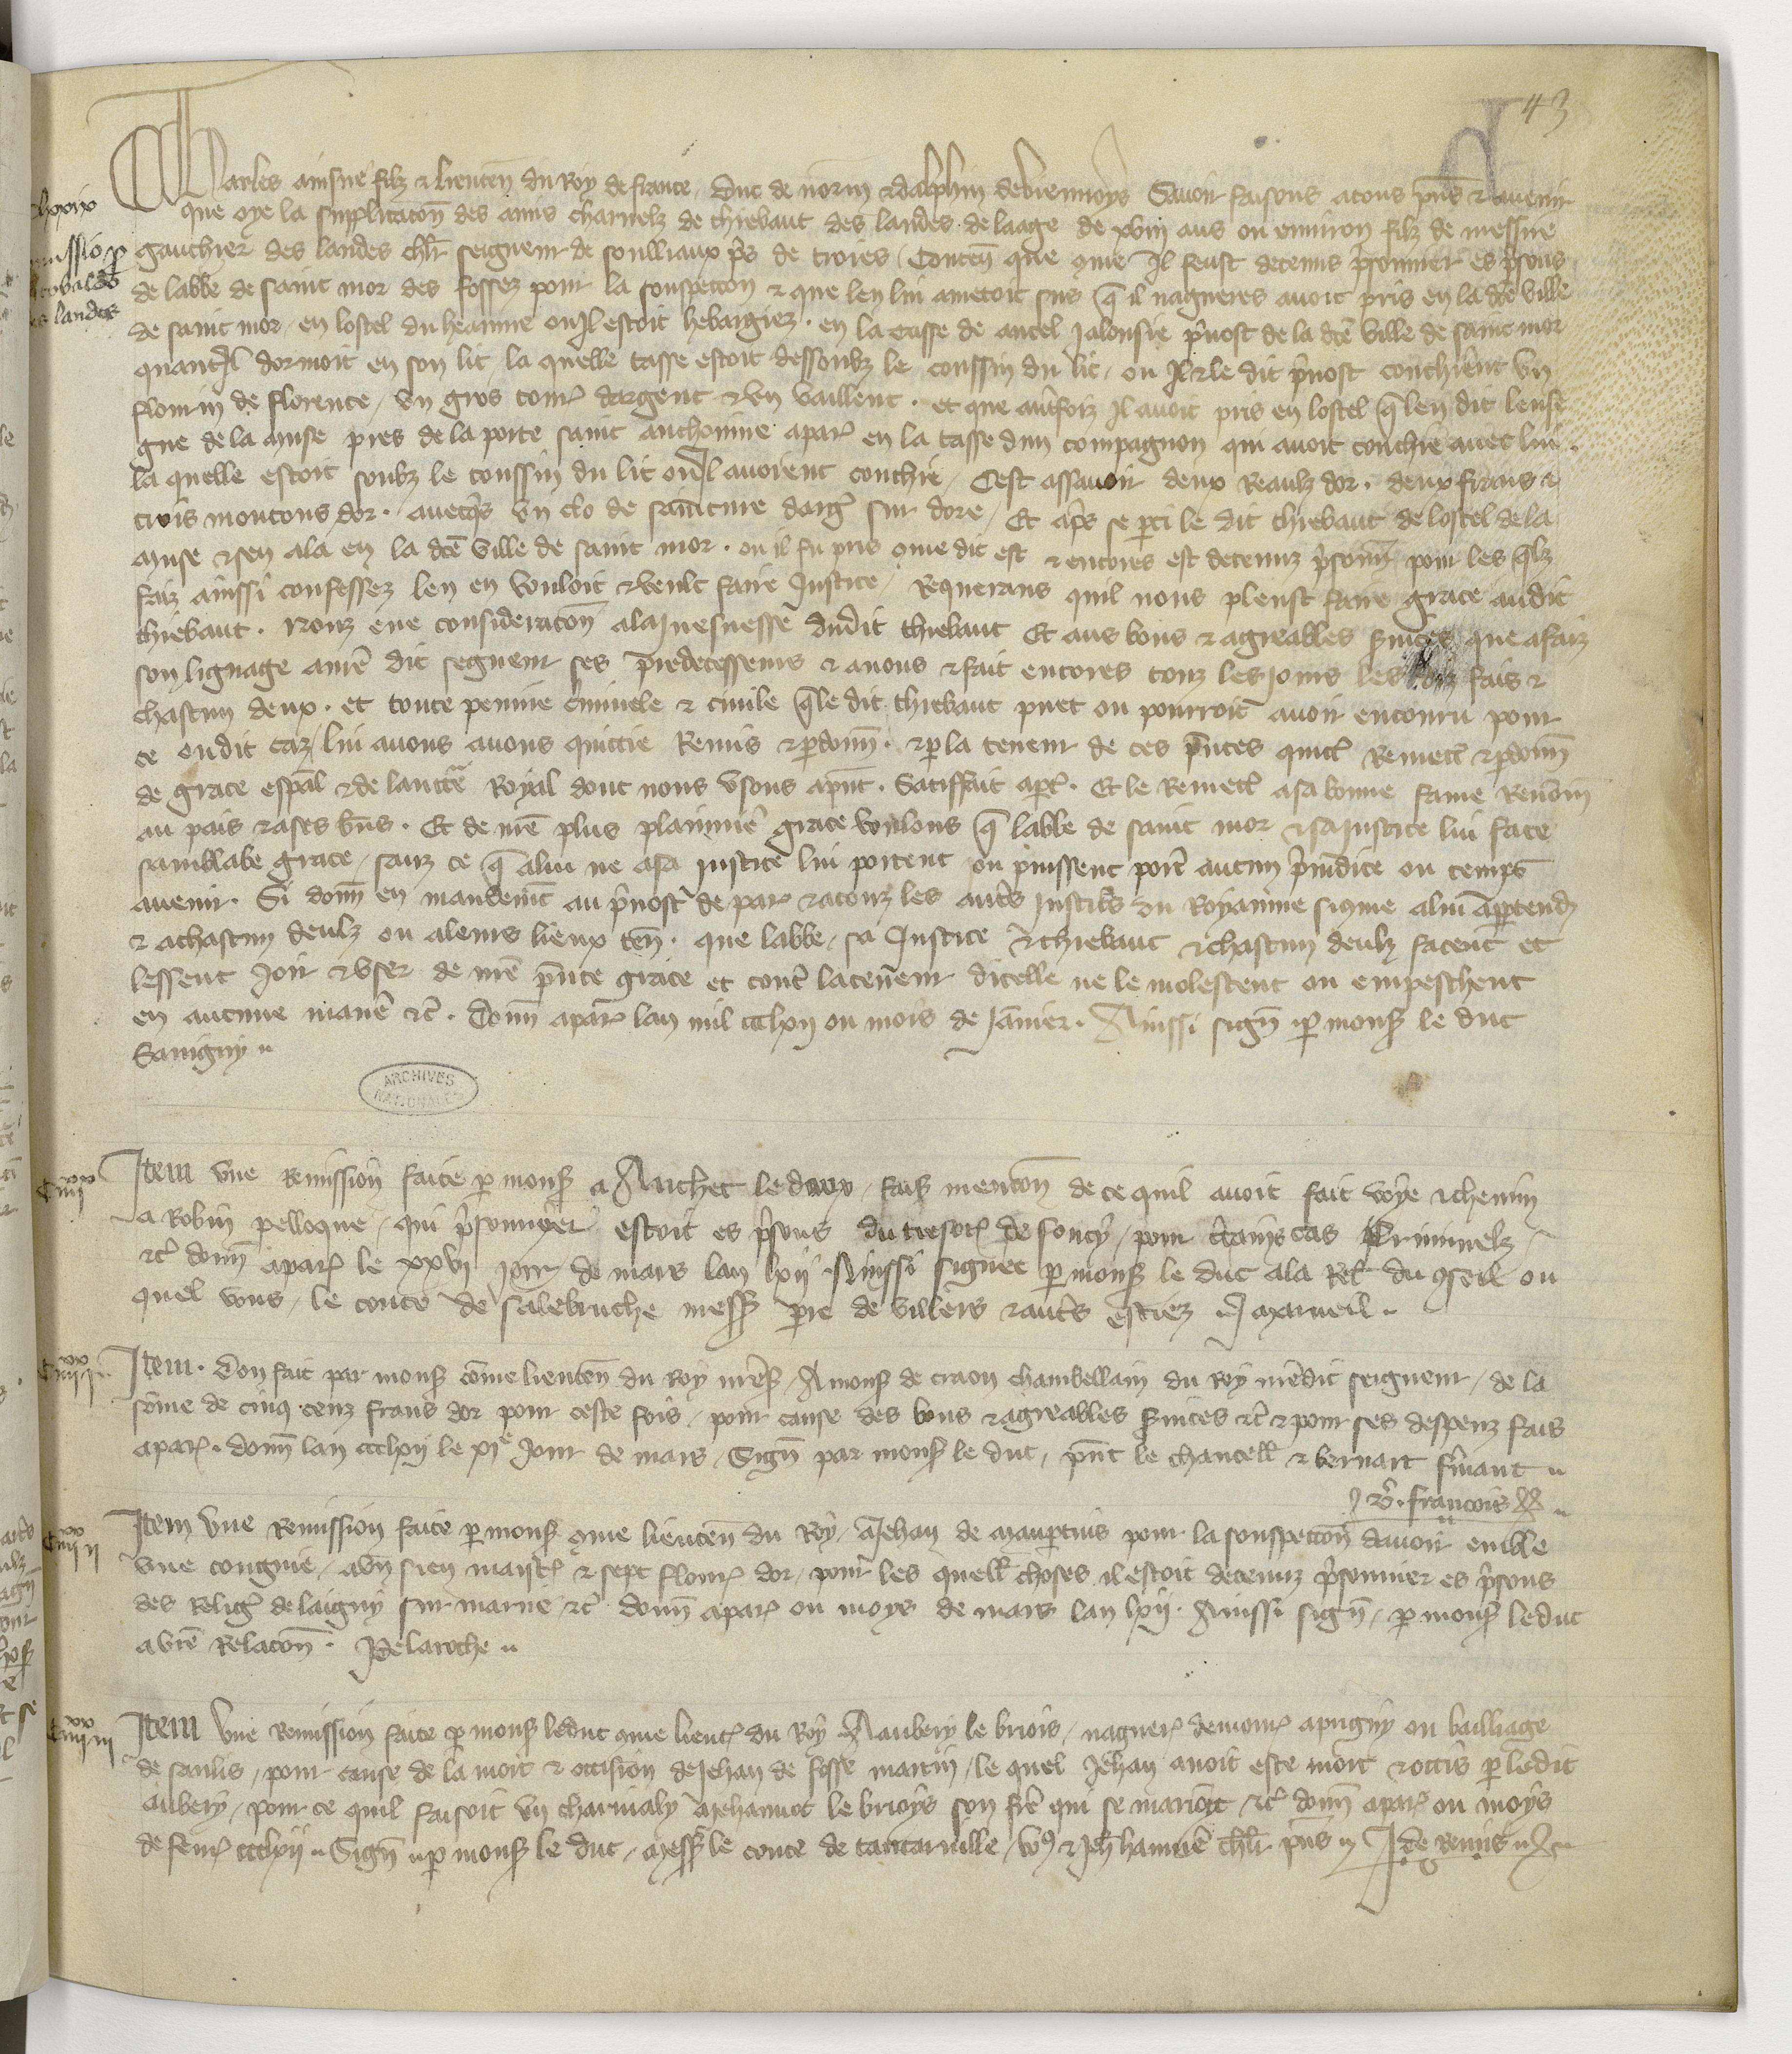 43
Charles ainsne filz & lieuten du Roy de france, Duc de norm & dalphin de viennoys Savoir faisons a tous pns & avenir
que oye la supplicacon des amis charnelz de thiebaut des landes de laage de xviii ans ou environ filz de messire
gauchier des landes chlr seigneur de soulliaux pres de troies, Conten que comme il feust detenus prisonnier es prisons
de labbe de saint mor des fossez pour la souspecon & que len lui metoit sus que il nagueres avoit pris en la dce ville
de saint mor, en lostel du heaume ou il estoit hebargiez, en la tasse de ancel Jalousie prevost de la dce ville de saint mor
quant il dormoit en son lit, la quelle tasse estoit dessoubz le coussin du lit, ou il & le dit prevost couchierent un
flourin de florence, un gros tour dargent & un vaillent. et que autrefoiz il avoit pris en lostel que len dit lensei
gne de la muse pres de la porte saint anthoinne a par en la tasse dun compagnon qui avoit couchie avec lui.
la quelle estoit soubz le coussin du lit ou il avoient couchie, Cest assavoir deux Reaulz dor. deux frans &
trois moutons dor. avecques un clo de sainture darg sur dore, Et apres se parti le dit thiebaut de lostel de la
muse & sen ala en la dce ville de saint mor. ou il fu pris comme dit est & encores est detenuz prisonn pour les quelz
faiz ainssi confessez len en vouloit & veult faire Justice, Requerans quil nous pleust faire grace audit
thiebaut. Nous eue consideracon a la Juesnesse dudit thiebaut Et aus bons & agreables services que a faiz
son lignage a nre dit segneur ses predecesseurs & a nous & fait encores touz les Jours les faiz &
chascun deux. et toute peinne criminele & civile que le dit thiebaut puet ou pourroit avoir encouru pour
ce ou dit caz, lui avons avons quittie Remis & pardonn. & par la teneur de ces pntes quitt Remett & pardonn
de grace espal & de lauctte Royal dont nous usons a pnt. Satiffait a part. Et le Remett a sa bonne fame Renom
au pais & a ses bns. Et de nre plus plainne grace voulons que labbe de saint mor & sa Justice lui face
samblabe grace, sanz ce que a lui ne a sa justice lui portent ou puissent porter aucun preiudice ou temps
avenir. Si donn en mandement au prevost de par & a touz les autres justiciers du Royaume si comme a lui appartendra
& a chascun deulz ou a leurs lieux ten. que labbe, sa Justice & thiebaut & chascun deulz facent et
lessent Joir & user de nre pnte grace et contre la teneur dicelle ne le molestent ou empeschent
en aucune maniere &c. Donn a par lan mil ccclxii ou mois de Janvier. Ainssi sign par mons le duc
Savigny
ARCHIVES NATIONALES
Item une Remission faite par mons a Auchet le doux, fais mencon de ce quil avoit fait voye & chemin
a Robin pelloque, qui prisonnier estoit es prisons du tresor de soucy, pour certains cas Criminelz
&c donn a par le xxvi jour de mars lan lxii Ainssi signee par mons le duc a la Rel du conseil ou
quel vous, le conte de salebruche mess pre de villers & autres estiez. J marueil.
Item. Don fait par mons come lieuten du Roy nres, A mons de craon chambellain du Roy nredit seigneur, de la
some de cinq cenz frans dor pour ceste fois, pour cause des bons & agreables services &c & pour ses despenz fais
a par. donn lan ccclxii le xie Jour de mars, Sign par mons le duc, pnt le chancell & bernart fermant
francois
Item une Remission faite par mons comme lieuten du Roy, a Jehan de maupertuis pour la souspecon davoir emble
une congnie, a un sien maistre & sept flour dor, pour les quell choses il estoit detenuz prisonnier es prisons
des Relig de laigny sur marne, &c donn a par ou moys de mars lan lxii. Ainssi sign, par mons le duc
a vre Relacon. P de la roche
Item Une Remission faite par mons le duc comme lieut du Roy A aubery le briois, naguer demour a prigny ou bailliage
de sanlis, pour cause de la mort & occision de Jehan de fosse martin, le quel Jehan avoit este mort & occis par le dit
aubery, pour ce quil faisoit un charivaly a Jehannot le brioys son frere qui se marioit &c donn a par ou moys
de fevr ccclxii Sign par mons le duc, mess le conte de tancarville, & Jeh hanniere chlr pns J de Reims